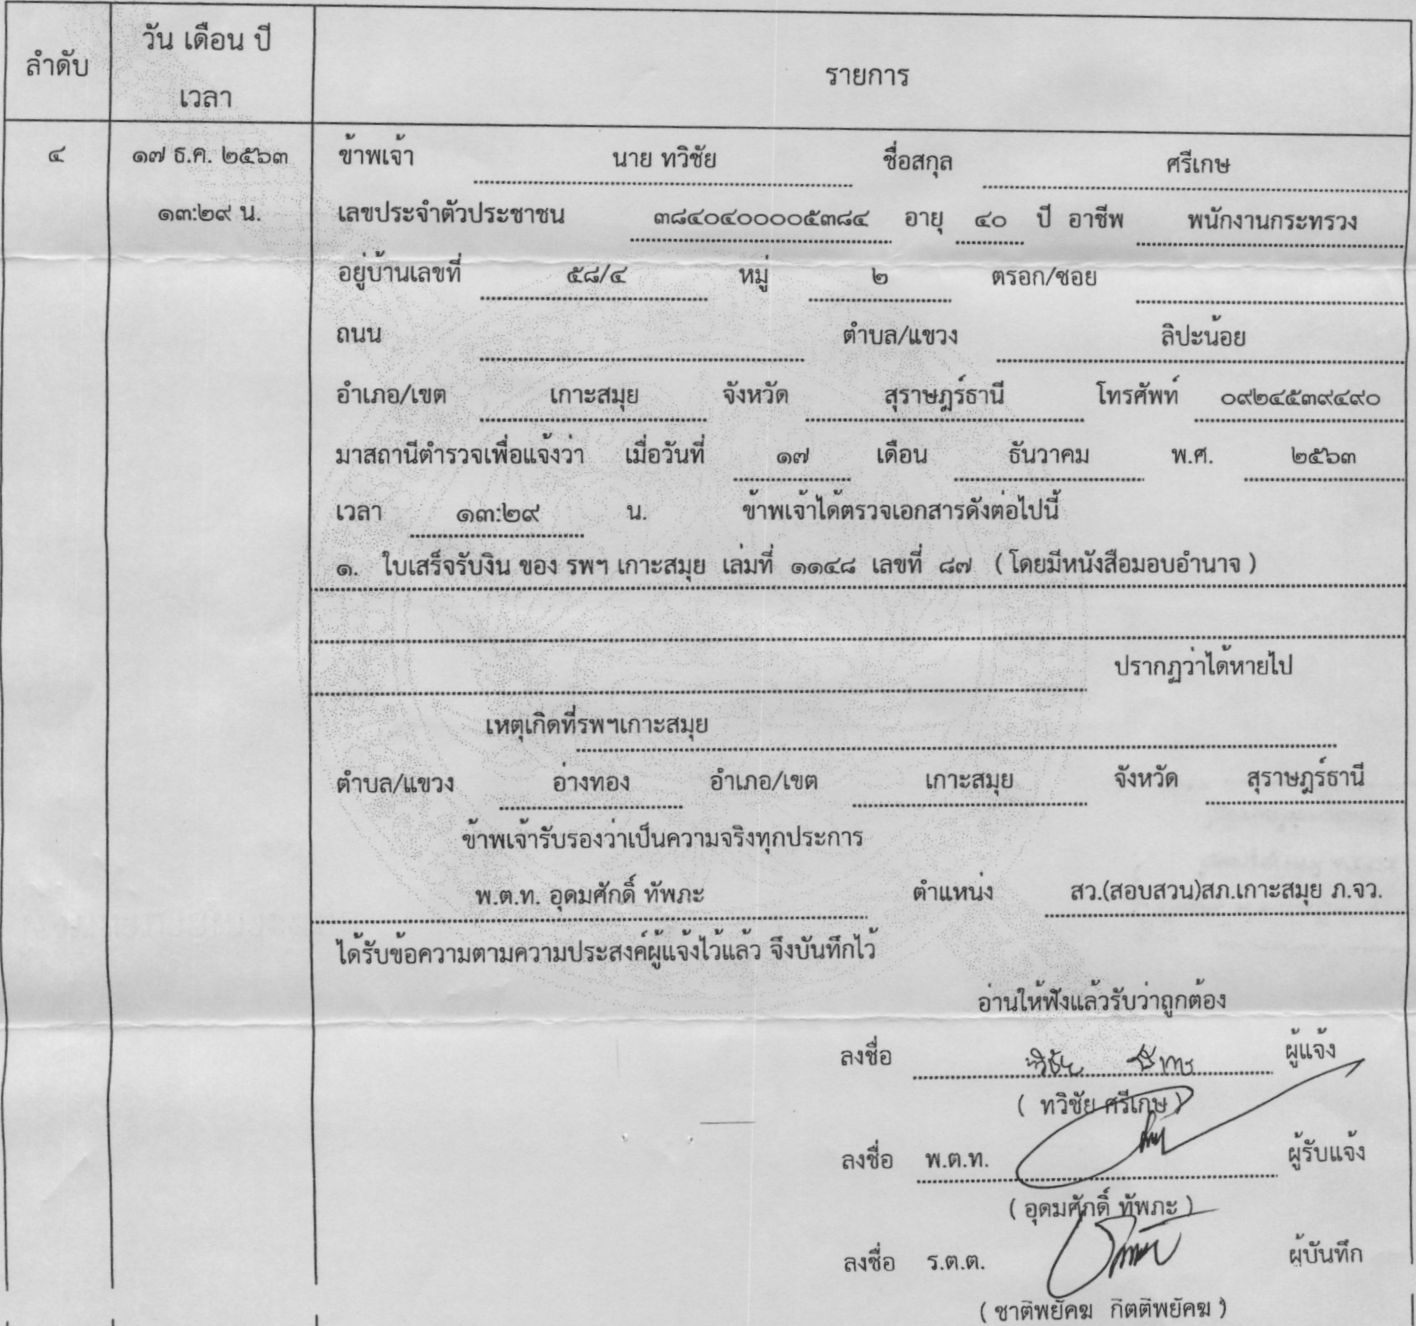 ลำดับ วัน เดือน ปี เวลา รายการ
๔ ๑๗ ธ.ค. ๒๕๖๓ ข้าพเจ้า นาย ทวิชัย ชื่อสกุล ศรีเกษ
๑๓:๒๙ น. เลขประจำตัวประชาชน ๓๘๔๐๔๐๐๐๐๕๓๘๔ อายุ ๔๐ ปี อาชีพ พนักงานกระทรวง
อยู่บ้านเลขที่ ๕๘/๔ หมู่ ๒ ตรอก/ซอย
ถนน ตำบล/แขวง ลิปะน้อย
อำเภอ/เขต เกาะสมุย จังหวัด สุราษฎร์ธานี โทรศัพท์ ๐๙๒๔๕๓๙๔๙๐
มาสถานีตำรวจเพื่อแจ้งว่า เมื่อวันที่ ๑๗ เดือน ธันวาคม พ.ศ. ๒๕๖๓
เวลา ๑๓:๒๙ น. ข้าพเจ้าได้ตรวจเอกสารดังต่อไปนี้
๑. ใบเสร็จรับเงิน ของ รพฯ เกาะสมุย เล่มที่ ๑๑๔๘ เลขที่ ๘๗ ( โดยมีหนังสือมอบอำนาจ )
ปรากฏว่าได้หายไป
เหตุเกิดที่รพฯเกาะสมุย
ตำบล/แขวง อ่างทอง อำเภอ/เขต เกาะสมุย จังหวัด สุราษฎร์ธานี
ข้าพเจ้ารับรองว่าเป็นความจริงทุกประการ
พ.ต.ท. อุดมศักดิ์ ทัพภะ ตำแหน่ง สว.(สอบสวน)สภ.เกาะสมุย ภ.จว.
ได้รับข้อความตามความประสงค์ผู้แจ้งไว้แล้ว จึงบันทึกไว้
อ่านให้ฟังแล้วรับว่าถูกต้อง
ลงชื่อ ผู้แจ้ง
( ทวิชัย ศรีเกษ )
ลงชื่อ พ.ต.ท. ผู้รับแจ้ง
( อุดมศักดิ์ ทัพภะ )
ลงชื่อ ร.ต.ต. ผู้บันทึก
( ชาติพยัคฆ กิตติพยัคฆ )